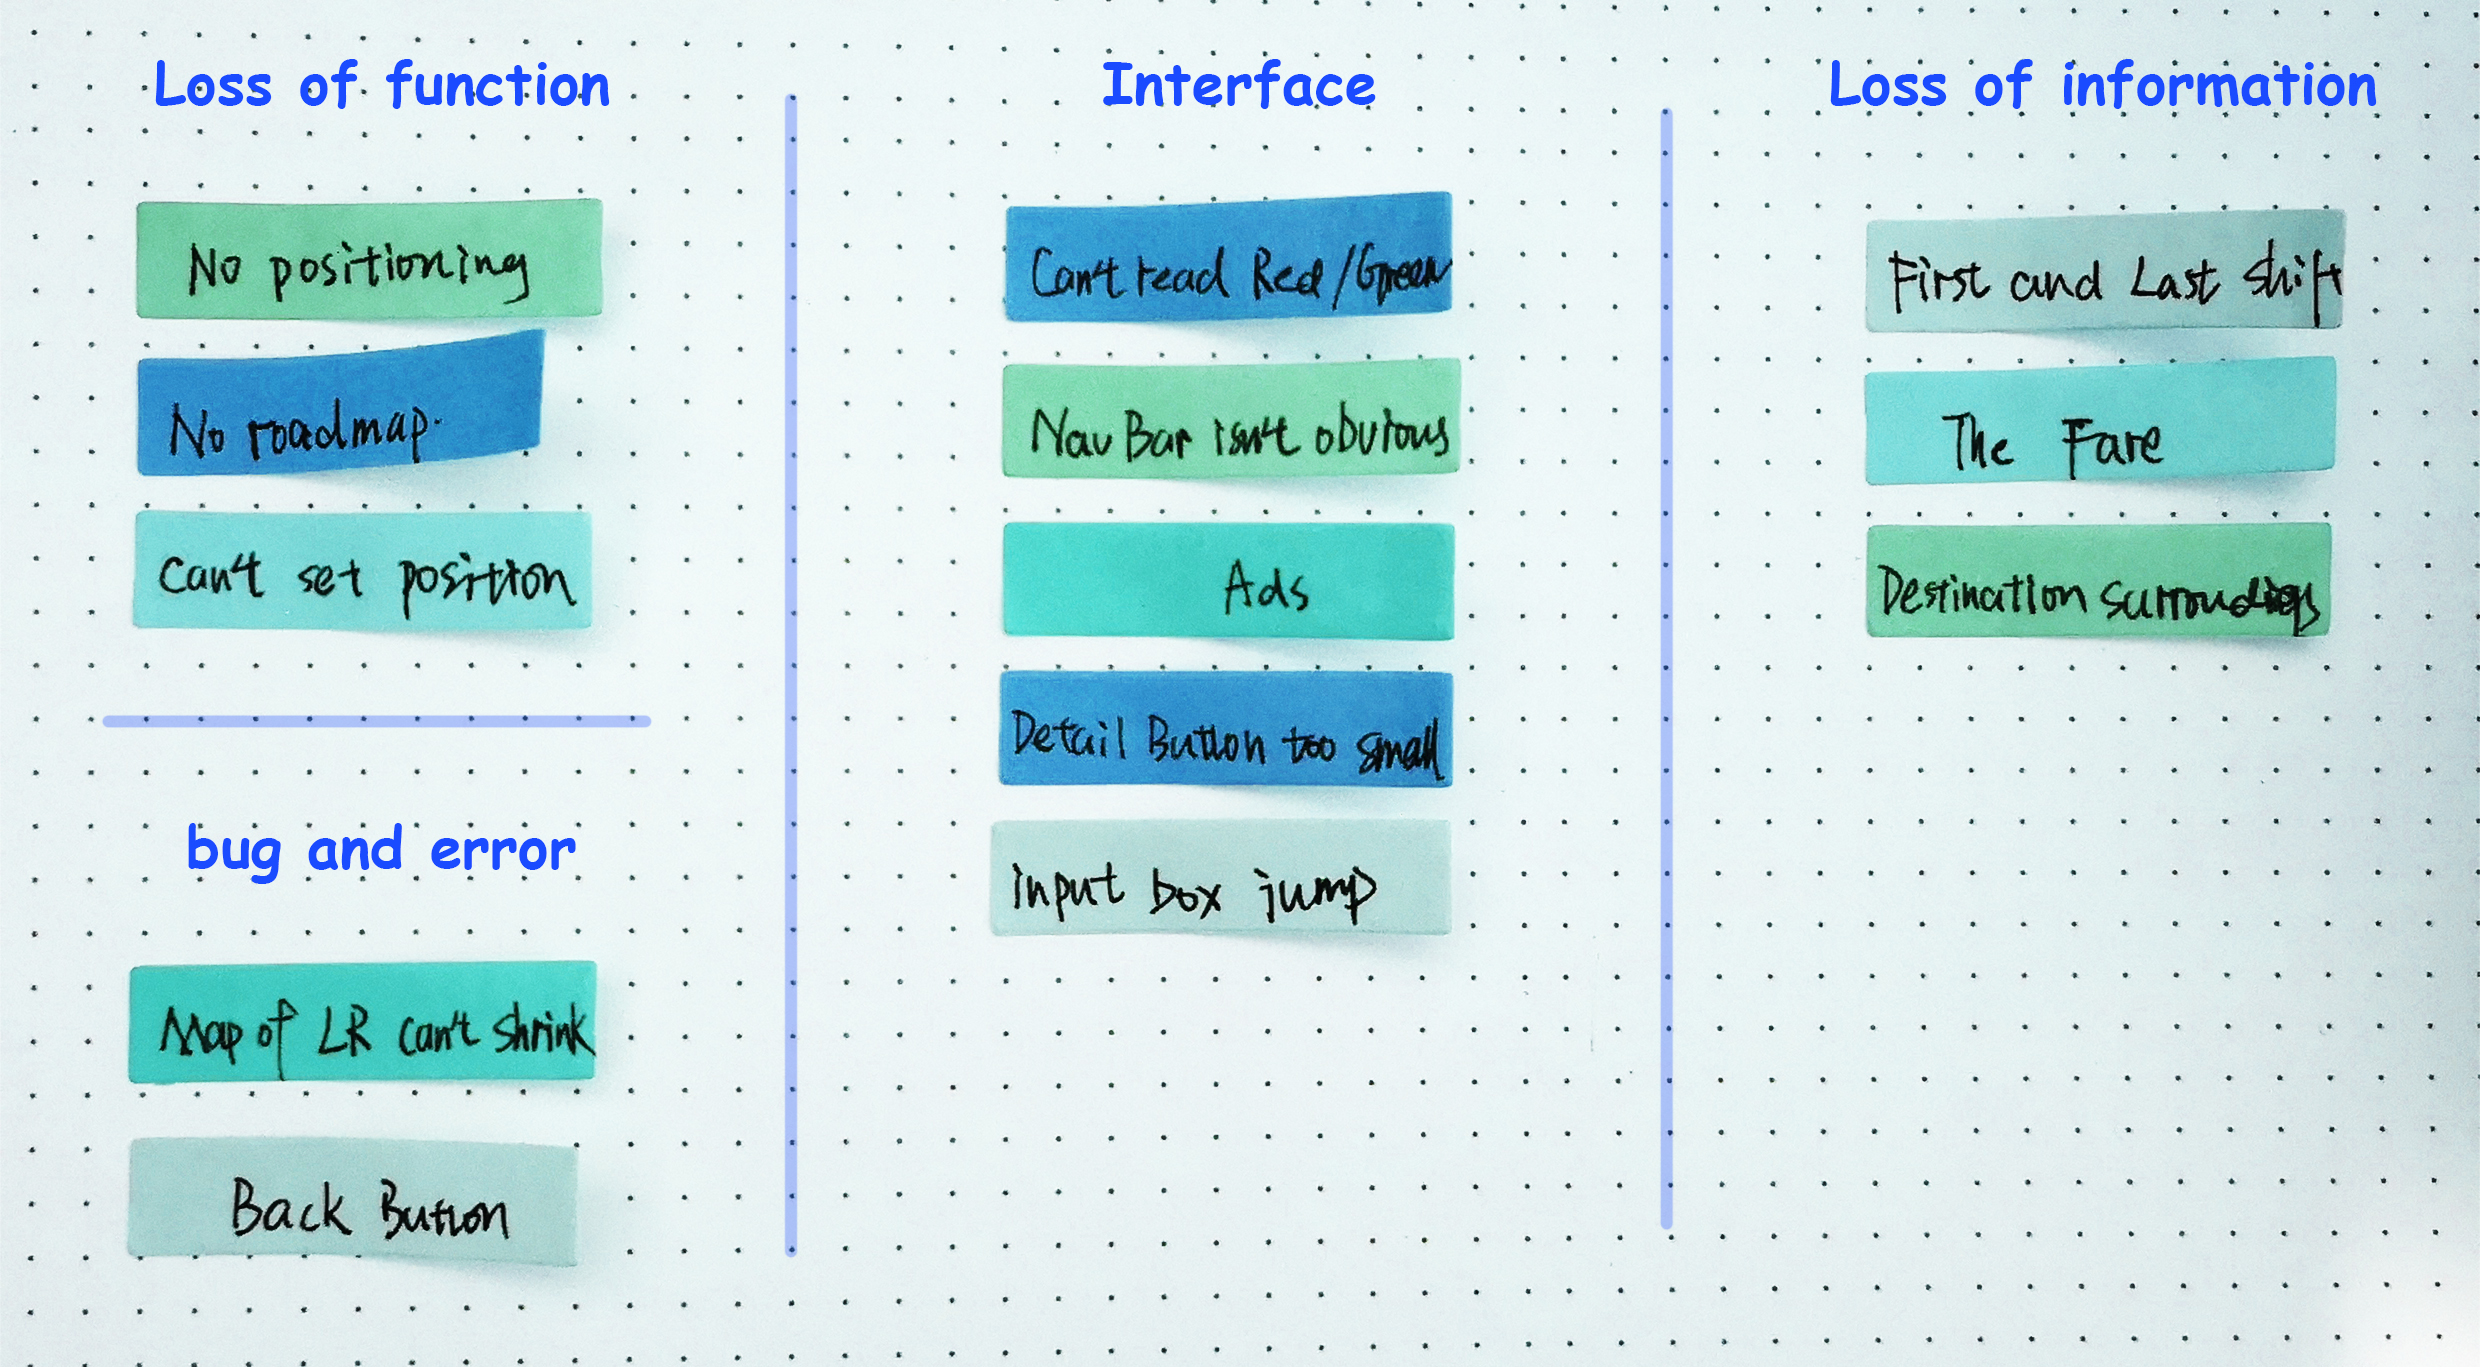 Loss of function
No positioning
No roadmap.
Can't set position
bug and error
Map of LR can't shrink
Back Button
Interface
Can't read Red/Green
Nav Bar isn't obvious
Ads
Detail Button too small
input box jump
Loss of information
First and Last shift
The Fare
Destination